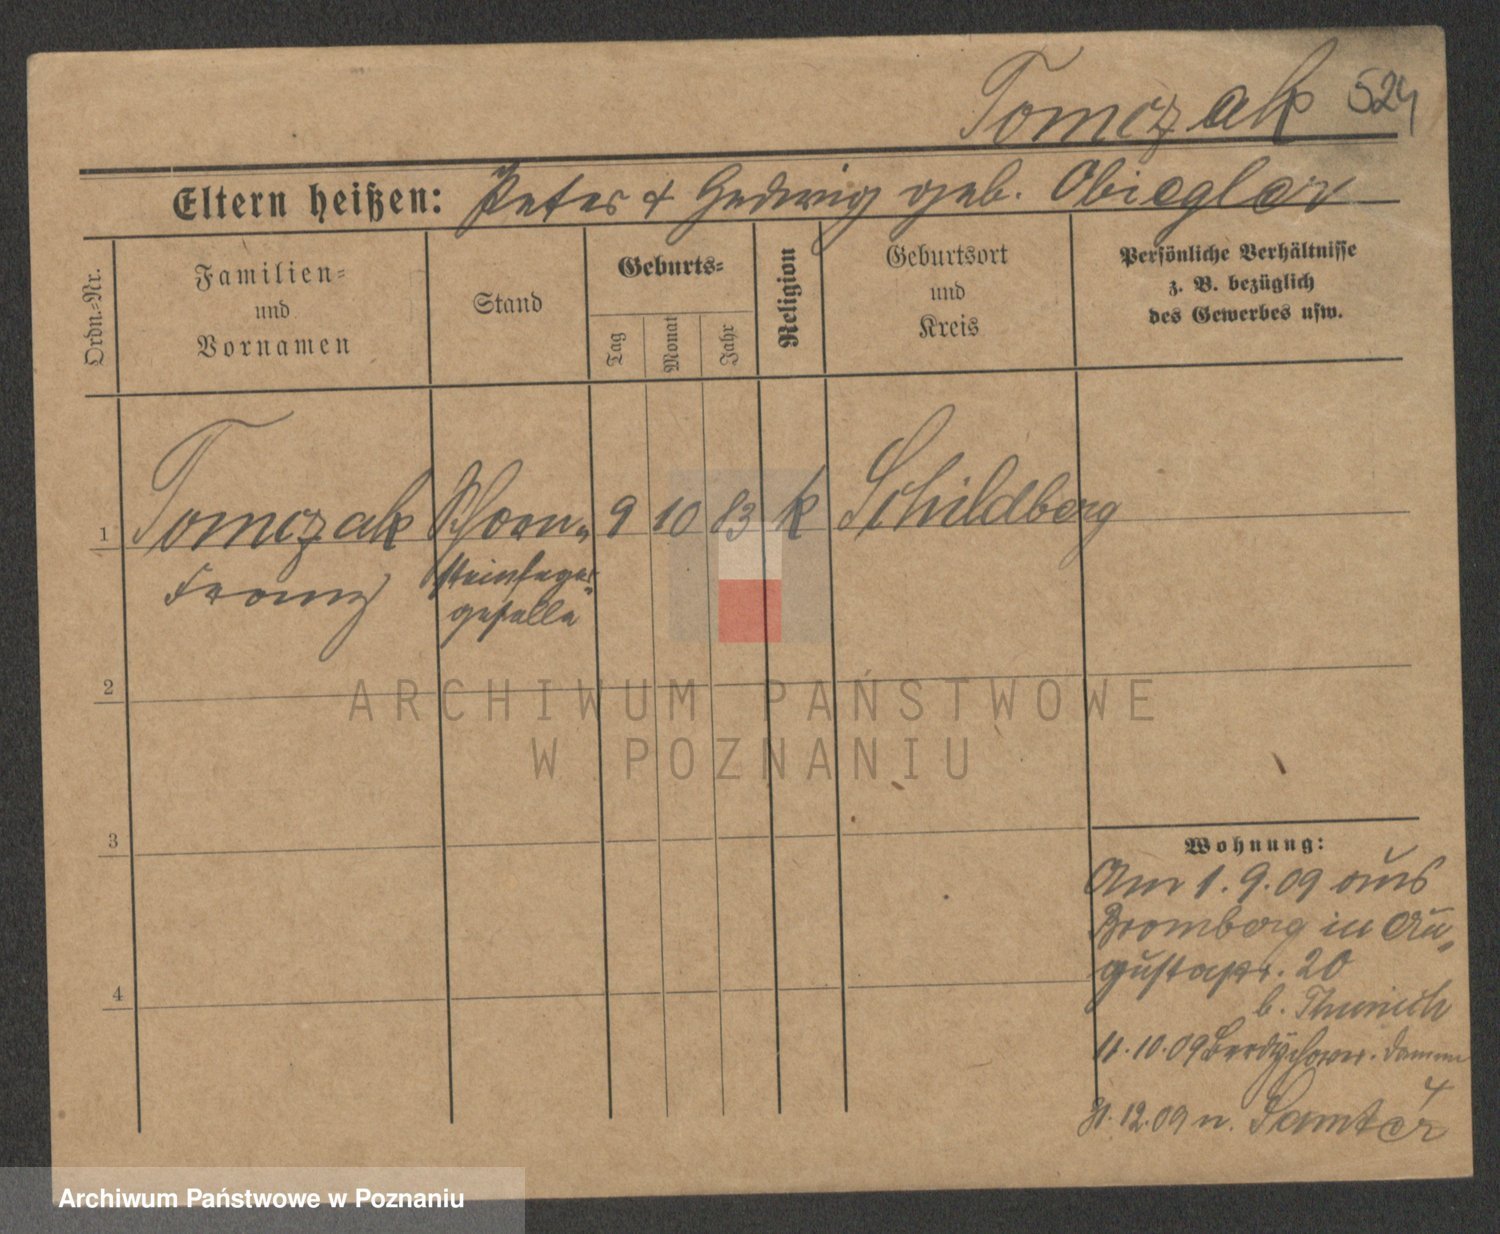 Tomczak 524
Eltern heißen: Peter & Hedwig geb. Obiegler
Ordn.-Nr.
Familien-
und
Vornamen
Stand
Geburts-
Tag
Monat
Jahr
Religion
Geburtsort
und
Kreis
Persönliche Verhältnisse
z. B. bezüglich
des Gewerbes usw.
1 Tomczak Schorn- 9 10 83 k Schildberg
Franz steinfeger-
geselle
2
3
4
Wohnung:
Am 1.9.09 aus
Bromberg in Au-
gustastr. 20
b.
11.10.09 Berdychower. Damm
4
31.12.09 n. Samter
ARCHIWUM PAŃSTWOWE
W POZNANIU
Archiwum Państwowe w Poznaniu